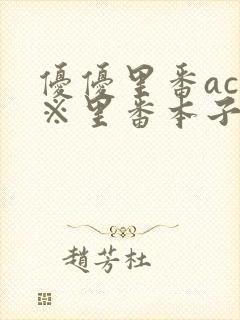 優優里番ac
※里番本子
趙芳杜